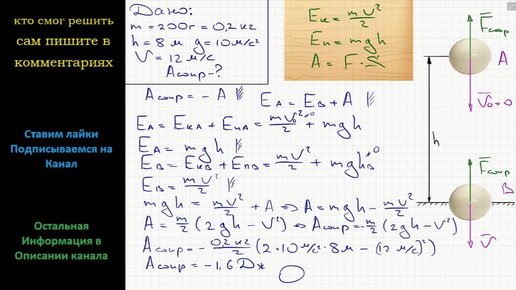 кто смог решить
сам пишите в
комментариях
Ставим лайки
Подписываемся на
Канал
Остальная
Информация в
Описании канала
Дано:
m = 200г = 0,2 кг
h = 8 м g = 10 м/с²
V = 12 м/с
Aсопр - ?
Eк = mV²/2
Eп = mgh
A = F·S
Aсопр = - A
EA = EB + A
EA = EкA + EпA = mV₀²/2 →0 + mgh
EA = mgh
EB = EкB + EпB = mV²/2 + mghB →0
EB = mV²/2
mgh = mV²/2 + A ⇒ A = mgh - mV²/2
A = m/2 (2gh - V²) ⇒ Aсопр = -m/2 (2gh - V²)
Aсопр = - 0,2 кг/2 (2·10 м/с²·8м - (12 м/с)²)
Aсопр = -1,6 Дж
Fсопр
A
V₀ = 0
h
Fсопр
B
V